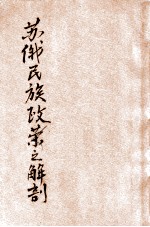 苏俄民族政策之解剖